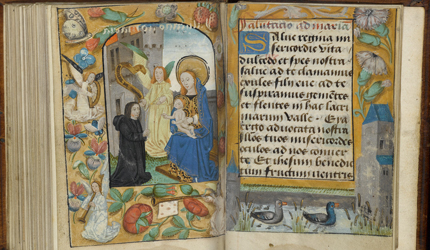 Salutacio ad maria
Salue regina mi
sericordie vita
dulcedo et spes nostra
salue ad te clamamus
exules filij eue ad te
suspiramus gemẽtes
et flentes in hac lacri
marum valle · Eya
ergo aduocata nostra
illos tuos misericordes
oculos ad nos conuer
te Et ihesum benedic
tum fructum ventris